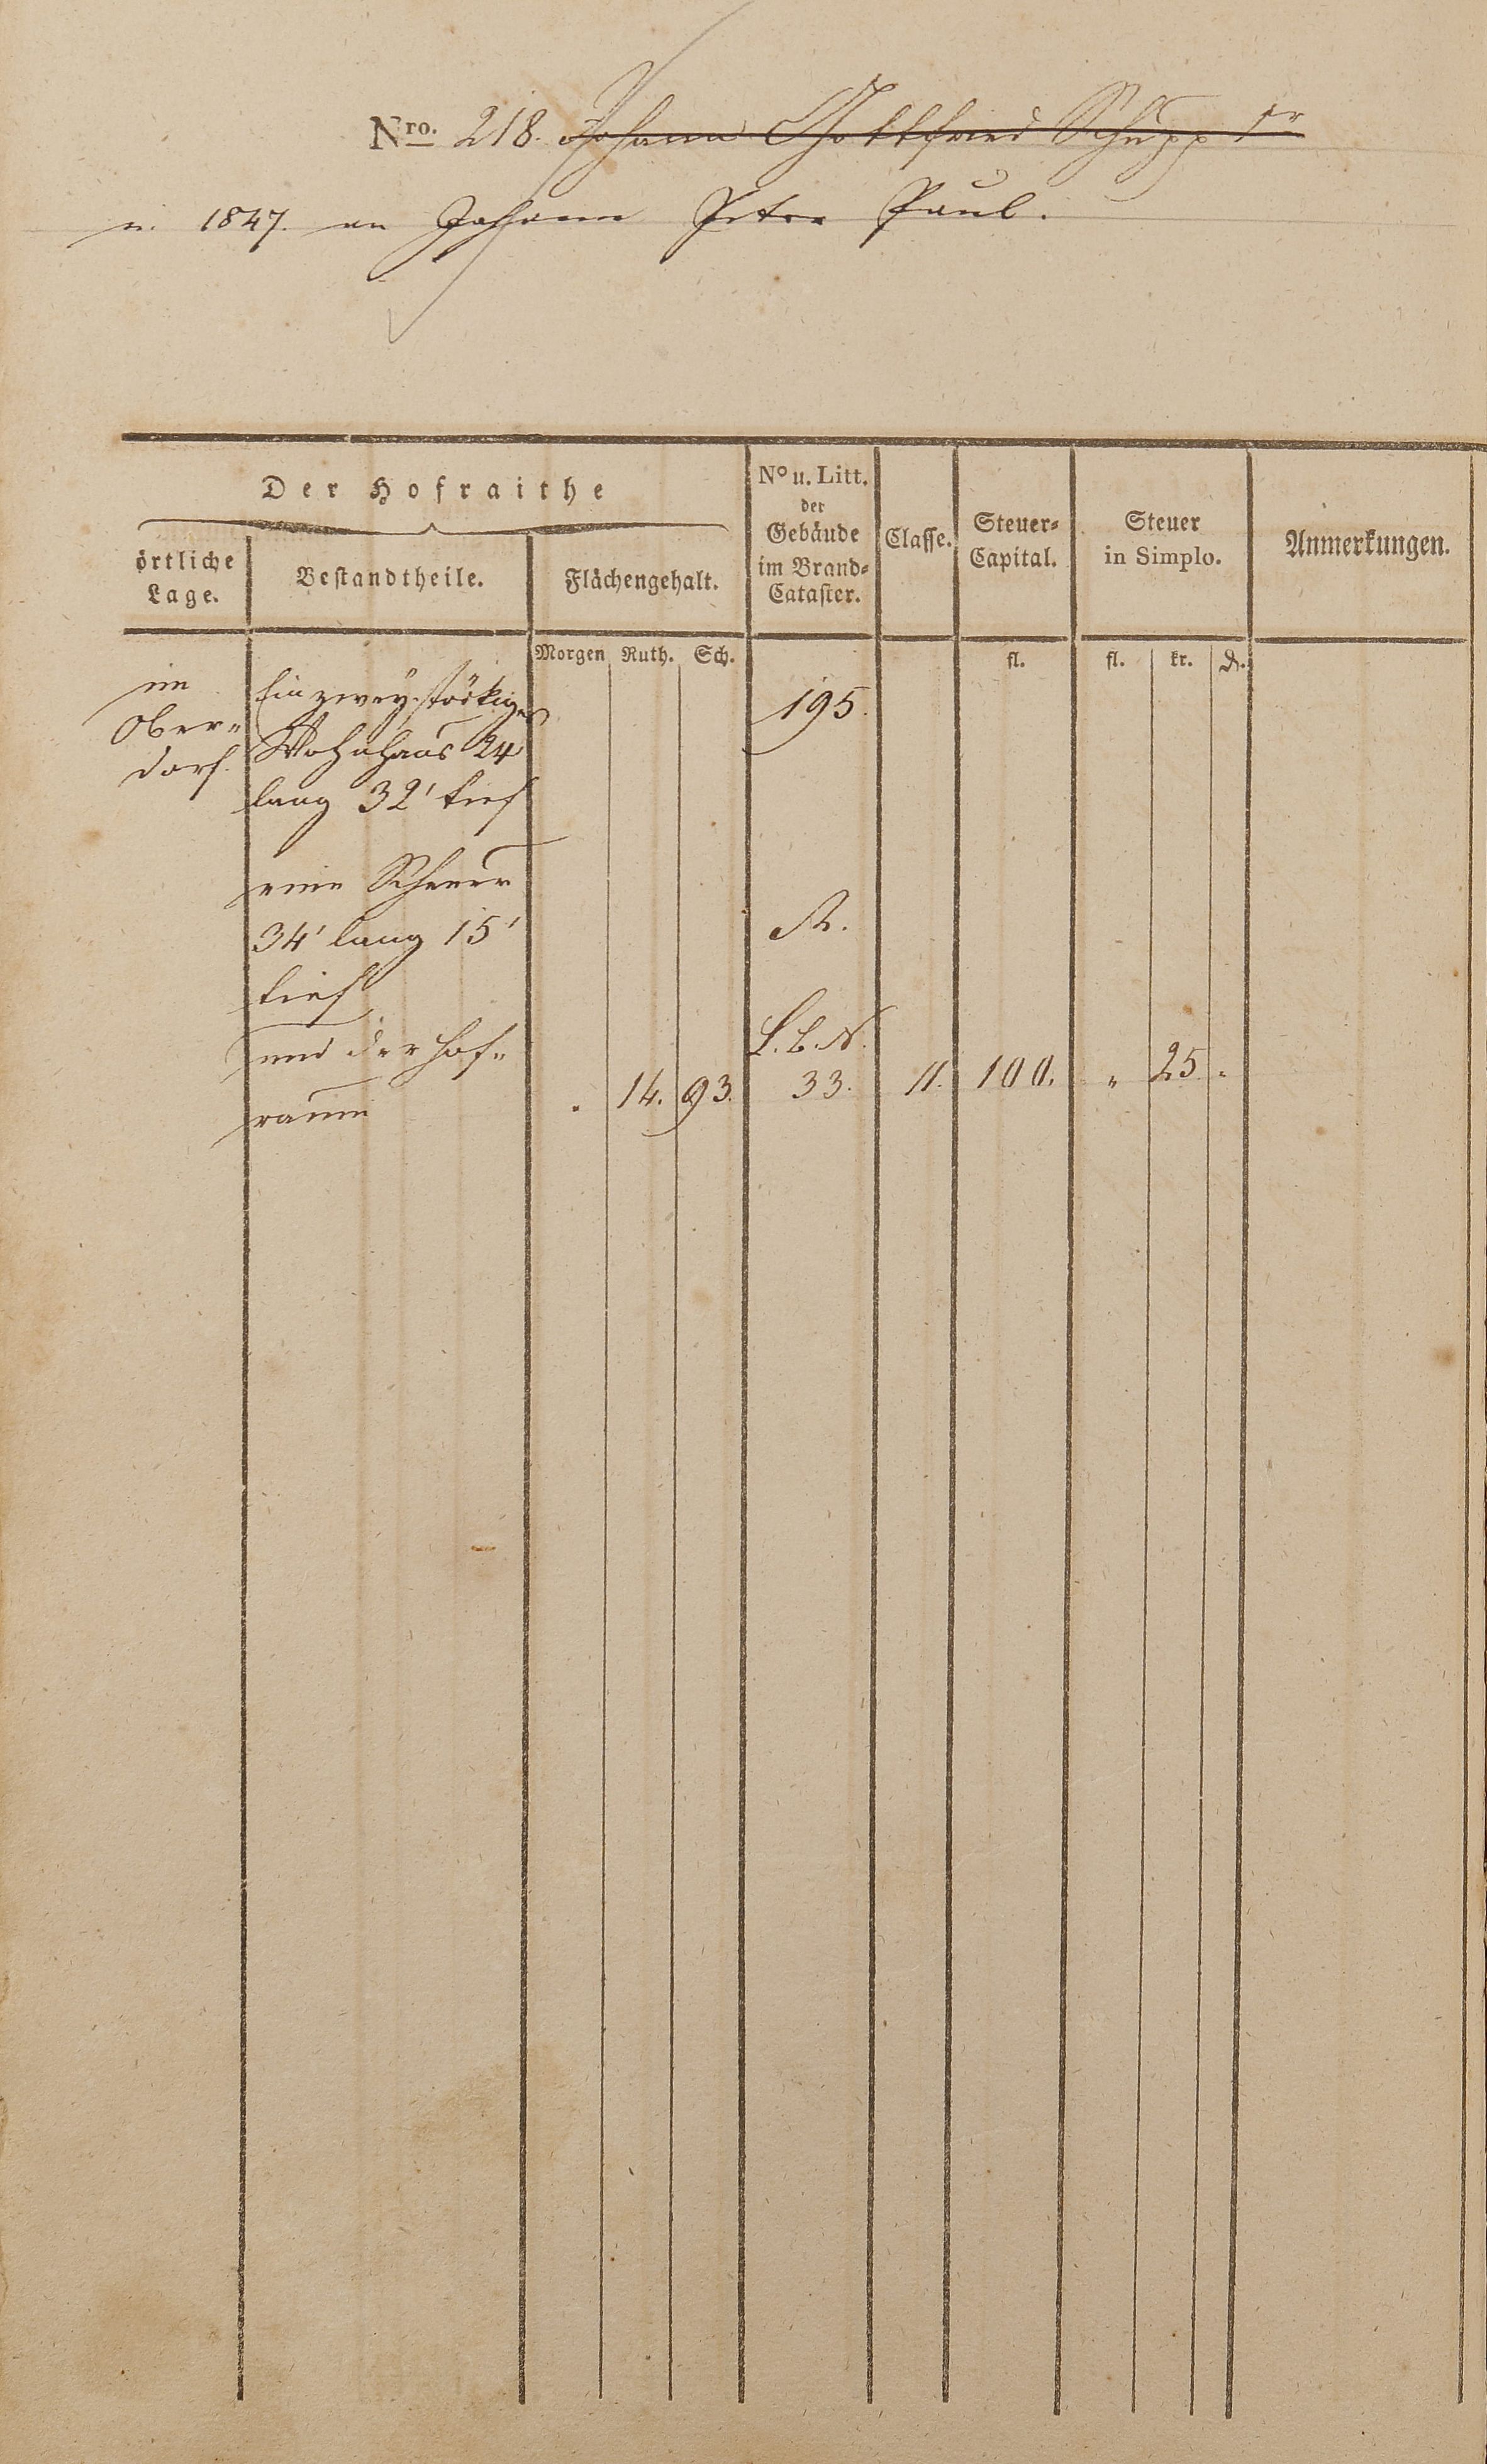 Nro. 218. Johann Gottfried Schupp 1r
n. 1847. an Johann Peter Paul.
Der Hofraithe
örtliche
Lage.
Bestandtheile.
Flächengehalt.
No u. Litt.
der
Gebäude
im Brand-
Cataster.
Classe.
Steuer-
Capital.
Steuer
in Simplo.
Anmerkungen.
Morgen Ruth. Sch.
fl. fl. kr. d.
im
Ober-
dorf.
Ein zweystöckiges
Wohnhaus 24
lang 32' tief
195.
eine Scheuer
34' lang 15'
tief
A.
und der Hof-
raum
L.b.N.
. 14. 93. 33. 11. 100. " 25. "